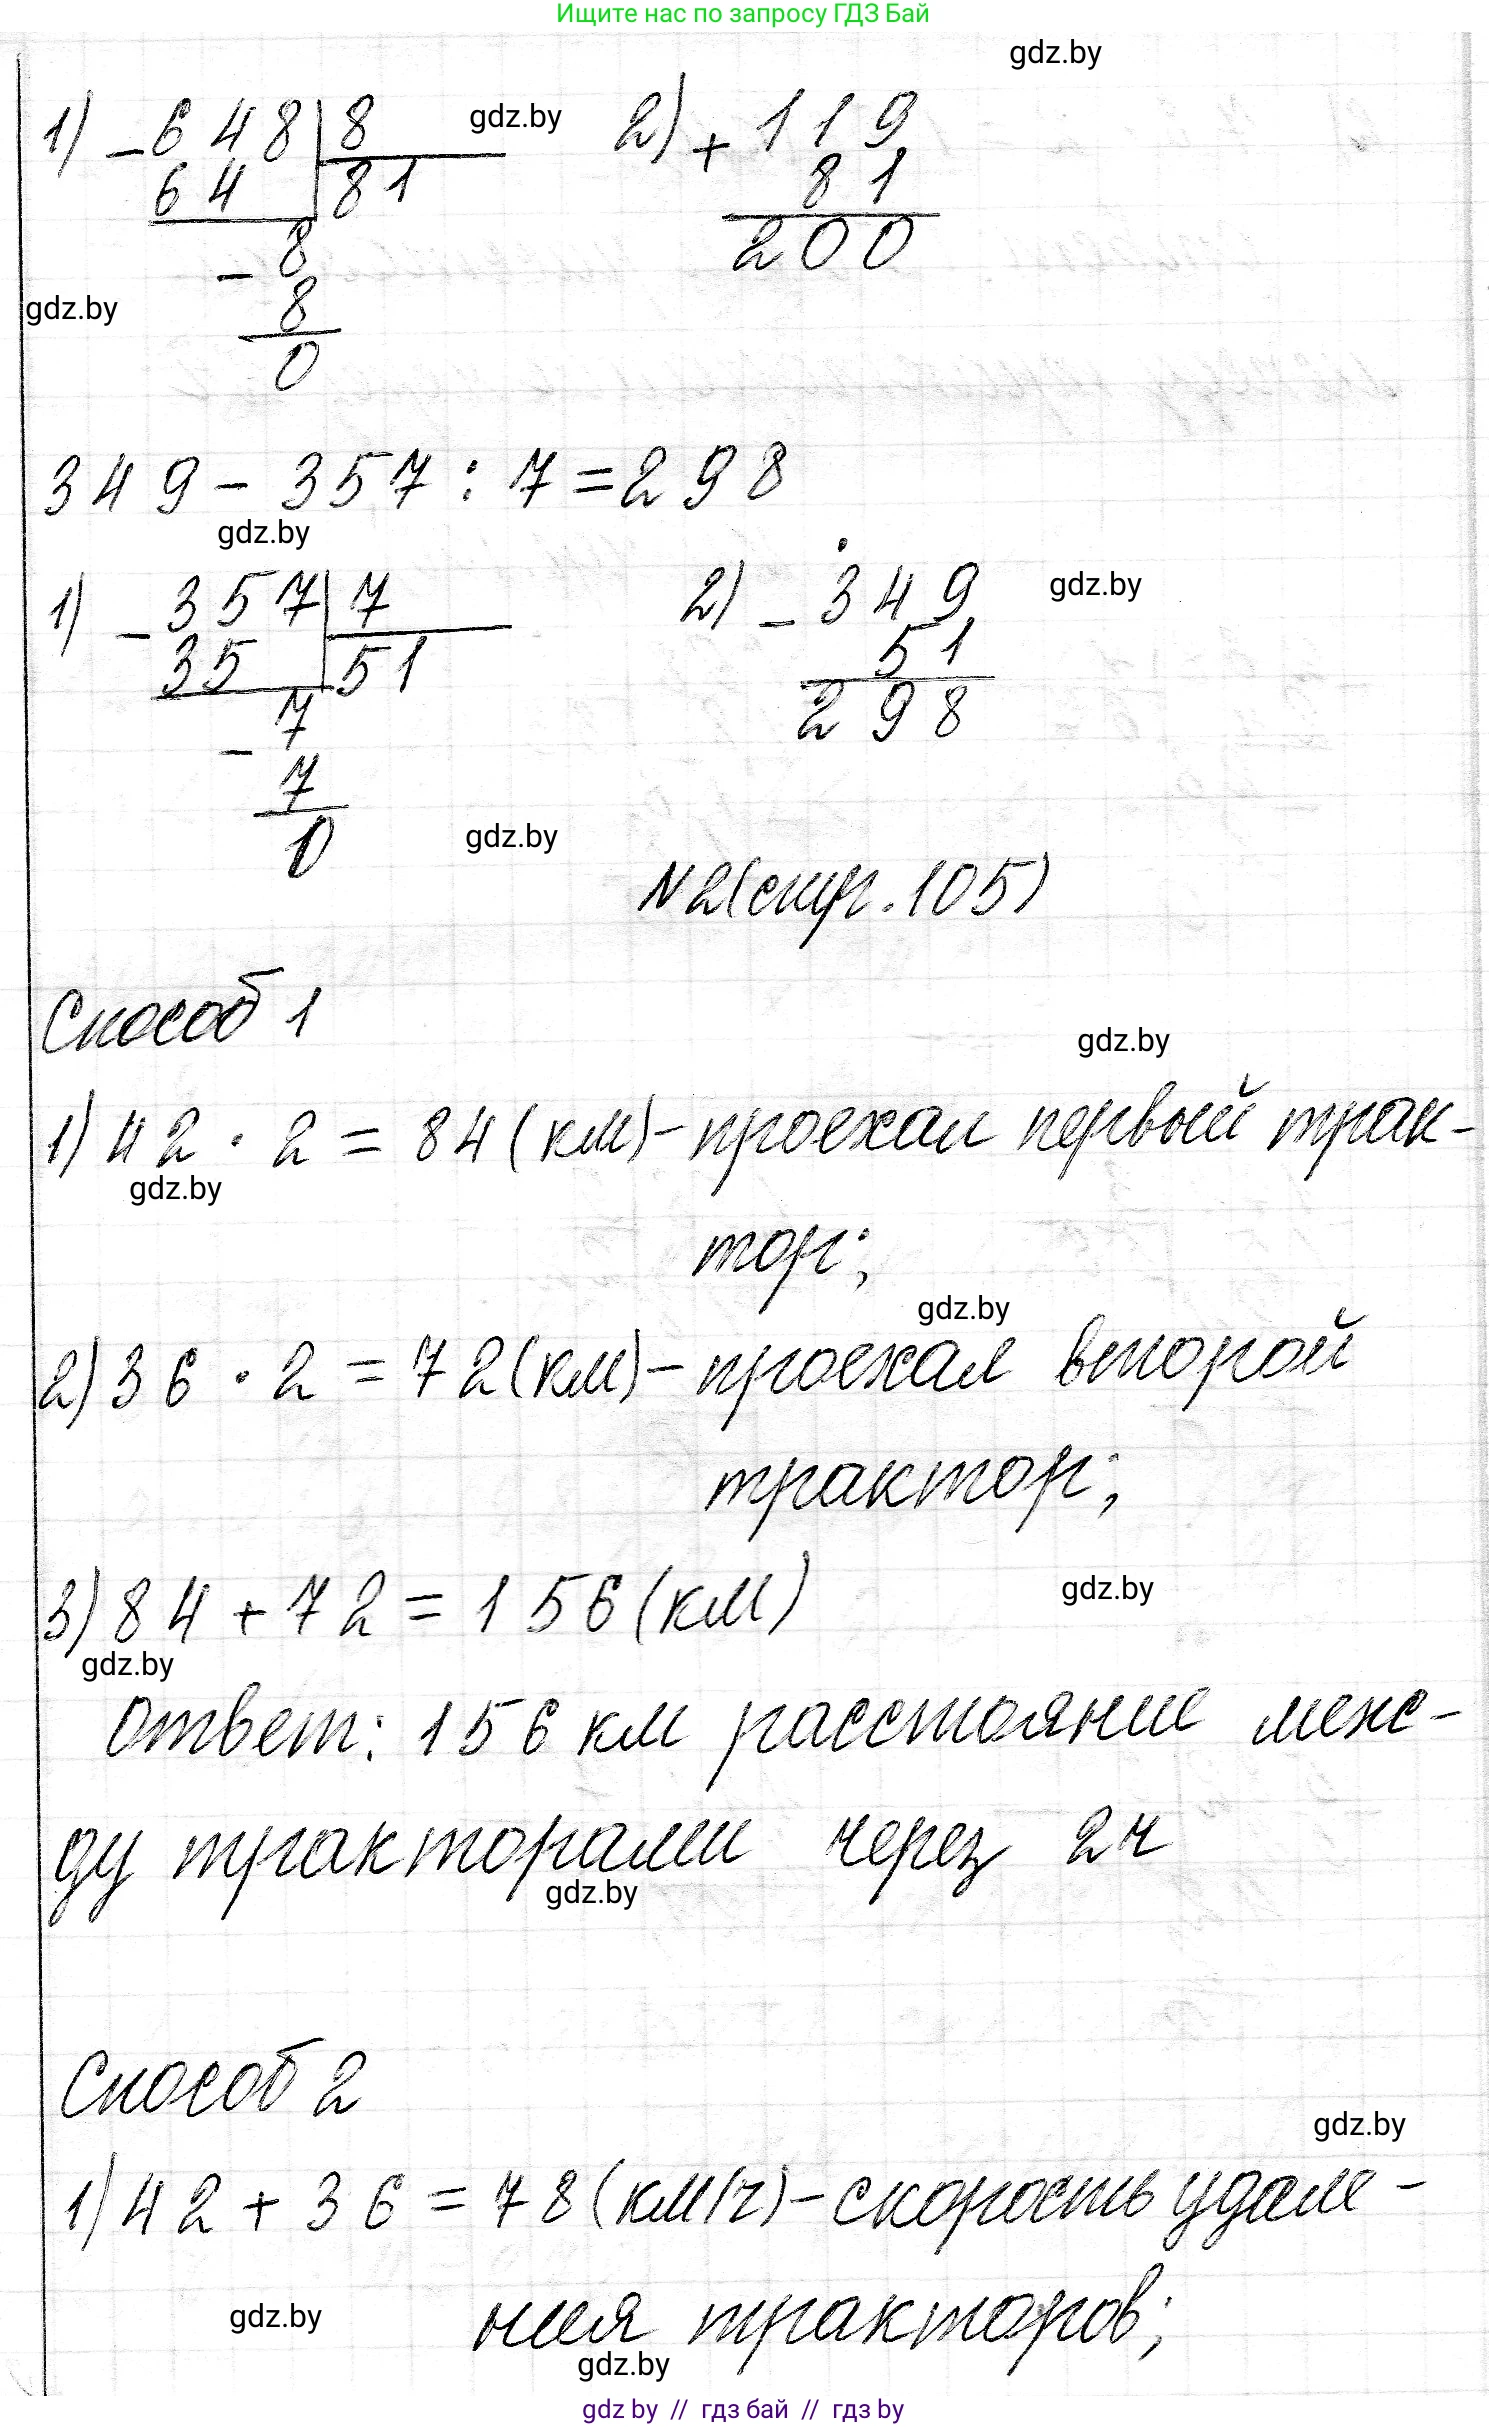 Ищите нас по запросу ГДЗ Бай
gdz.by
1) - 648 | 8 gdz.by 2) + 119
64 81 81
- 8 200
gdz.by 8
0
349 - 357 : 7 = 298
gdz.by
1) - 357 | 7 2) - 349 gdz.by
35 51 51
- 7 298
7
0 gdz.by
N2(стр. 105)
Способ 1
gdz.by
1) 42 · 2 = 84 (км) - проехал первый трак-
gdz.by
тор;
gdz.by
2) 36 · 2 = 72 (км) - проехал второй
трактор;
3) 84 + 72 = 156 (км) gdz.by
gdz.by
Ответ: 156 км расстояние меж-
ду тракторами через 2ч
gdz.by
Способ 2
gdz.by
1) 42 + 36 = 78 (км/ч) - скорость удале-
gdz.by ния тракторов;
gdz.by
gdz by // гдз бай // гдз by